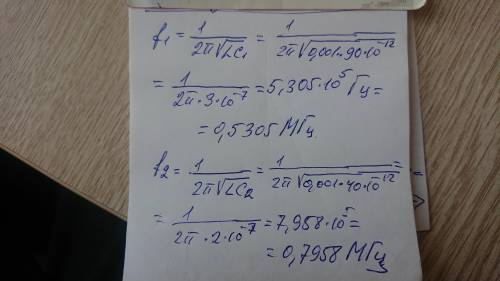 f₁ = 1/(2π√LC₁) = 1/(2π√0,001·90·10⁻¹²)
= 1/(2π·3·10⁻⁷) = 5,305·10⁵ Гц =
= 0,5305 МГц
f₂ = 1/(2π√LC₂) = 1/(2π√0,001·40·10⁻¹²) =
= 1/(2π·2·10⁻⁷) = 7,958·10⁵ =
= 0,7958 МГц